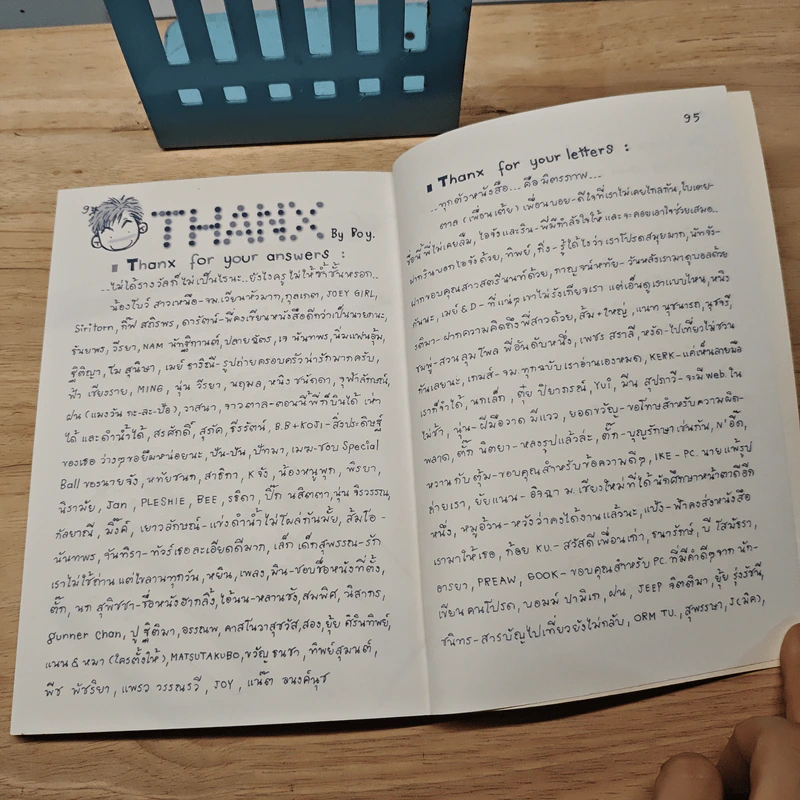 94
THANX By Boy.
Thanx for your answers :
...ไม่ได้รางวัลก็ไม่เป็นไรนะ..ยังไงครูไม่ให้ซ้ำชั้นหรอก..
น้องโบว์ สาวเหนือ-จม.เวียนหัวมาก, กุลเกต, JOEY GIRL,
Siritorn, กิ๊ฟ สถิรพร, ดารัตน์-พี่คงเขียนหนังสือดีกว่าเป็นนายกนะ,
ธันยพร, วีรยา, NAM นัทฐิกานต์, ปลายฉัตร, เจ นันทพร, นิ่มแฟนอุ้ม,
ฐิติญา, โม สุนิษา, เมย์ ธาริณี-รูปถ่ายครอบครัวน่ารักมากครับ,
ฟ้า เชียงราย, MING, นุ่น วีรยา, นฤมล, หนิง ชนัดดา, จุฬาลักษณ์,
ฝน (แมงวัน กะ-ละ-ป๋อง), วาสนา, จาวตาล-ตอนนี้พี่ก็บินได้ เห่า
ได้ และดำน้ำได้, สรศักดิ์, สุภัค, ธีรรัตน์, B.B+KOJI-สิ่งประดิษฐ์
ของเธอ ว่างๆขอยืมหน่อยนะ, ปัน-ปัน, ปัทมา, เมฆ-ชอบ Special
Ball ของนายจัง, หทัยชนก, สาธิกา, K จัง, น้องหนูพุก, พิรยา,
นิรามัย, Jan, PLESHIE, BEE, รธิดา, ปิ๊ก นสิตตา, นุ่น จิรวรรณ,
กัลยาณี, มิ้งค์, เยาวลักษณ์-แข่งดำน้ำไม่โผล่กันมั้ย, ส้มโอ-
นันทพร, จันทิรา-ทัวร์เธอละเอียดดีมาก, เล็ก เด็กสุพรรณ-รัก
เราไม่ใช้ถ่าน แต่ไขลานทุกวัน, หยิน, เพลง, มิน-ชอบชื่อหนังที่ตั้ง,
ตั๊ก, นก สุพิชชา-ชื่อหนังฮากลิ้ง, ไอ้นน-หลานชัง, สมพิศ, นิสากร,
gunner chan, ปู ฐิติมา, อรรณพ, คาสโนวาสุขวัส, สอง, ยุ้ย ศิรินทิพย์,
แนน & หมา (ใครตั้งให้), MATSUTAKUBO, ขวัญ ธนชา, ทิพย์สุมนต์,
พีช พัชริยา, แพรว วรรณรวี, JOY, แน๊ต อนงค์นุช
95
Thanx for your letters :
...ทุกตัวหนังสือ... คือมิตรภาพ...
ตาล (เพื่อนเต้ย) เพื่อนบอย-ดีใจที่เราไม่เคยไกลกัน, ใบเตย-
ชื่อนี้พี่ไม่เคยลืม, ไอจังและริน-พี่มีกำลังใจให้ และจะคอยเอาใจช่วยเสมอ..
ฝากรินบอกไอจังด้วย, ทิพย์, กิ่ง-รู้ได้ไงว่าเราโปรดสมุยมาก, นัทจัง-
ฝากขอบคุณสาวสตรีนนท์ด้วย, กาญจน์หทัย-วันหลังเรามาดูบอลด้วย
กันนะ, เมย์ & D-พี่แน่ๆ เขาไม่รังเกียจเรา แต่เอ็นดูเราแบบไหน, หนิง
รติมา-ฝากความคิดถึงพี่สาวด้วย, ส้ม+ใหญ่, แนท นุชนารถ, นุชจรี,
ชมพู่-สวนลุมโพล พี่อันดับหนึ่ง, เพชร สราลี, หงัด-ไปเที่ยวไม่ชวน
กันเลยนะ, เกมส์-จม.ทุกฉบับเราอ่านเองหมด, KERK-แค่เห็นลายมือ
เราก็จำได้, นกเล็ก, ตุ๋ย ปิยาภรณ์, Yui, มีน สุปภาวี-จะมี web. ใน
ไม่ช้า, นุ่น-ฝีมือวาด มีแวว, ยอดขวัญ-ขอโทษสำหรับความผิด-
พลาด, ตั๊ก นิตยา-หลงรูปแล้วล่ะ, ตั๊ก-บูญรักษาเช่นกัน, N'อี๊ด,
หวาน กับ ตุ้ม-ขอบคุณสำหรับข้อความดีๆ, IKE-PC. นาย แพ้รูป
ถ่ายเรา, ยัยแนน-อิจฉา ม.เชียงใหม่ที่ได้นักศึกษาหน้าตาดีอีก
หนึ่ง, หมูอ้วน-หวังว่าคงได้งานแล้วนะ, แป้ง-ฟ้าคงส่งหนังสือ
เรามาให้เธอ, ก้อย KU.-สวัสดีเพื่อนเก่า, ธนารักษ์, บี โสมิธรา,
อารยา, PREAW, GOOK-ขอบคุณสำหรับ PC.ที่มีคำดีๆจาก นัก-
เขียนคนโปรด, บอมม์ ปามิเก, ฝน, JEEP จิตติมา, ยุ้ย รุ่งรัชนี,
ชนิกร-สารบัญไปเที่ยวยังไม่กลับ, ORM TU., สุพรรษา, J(มิค),